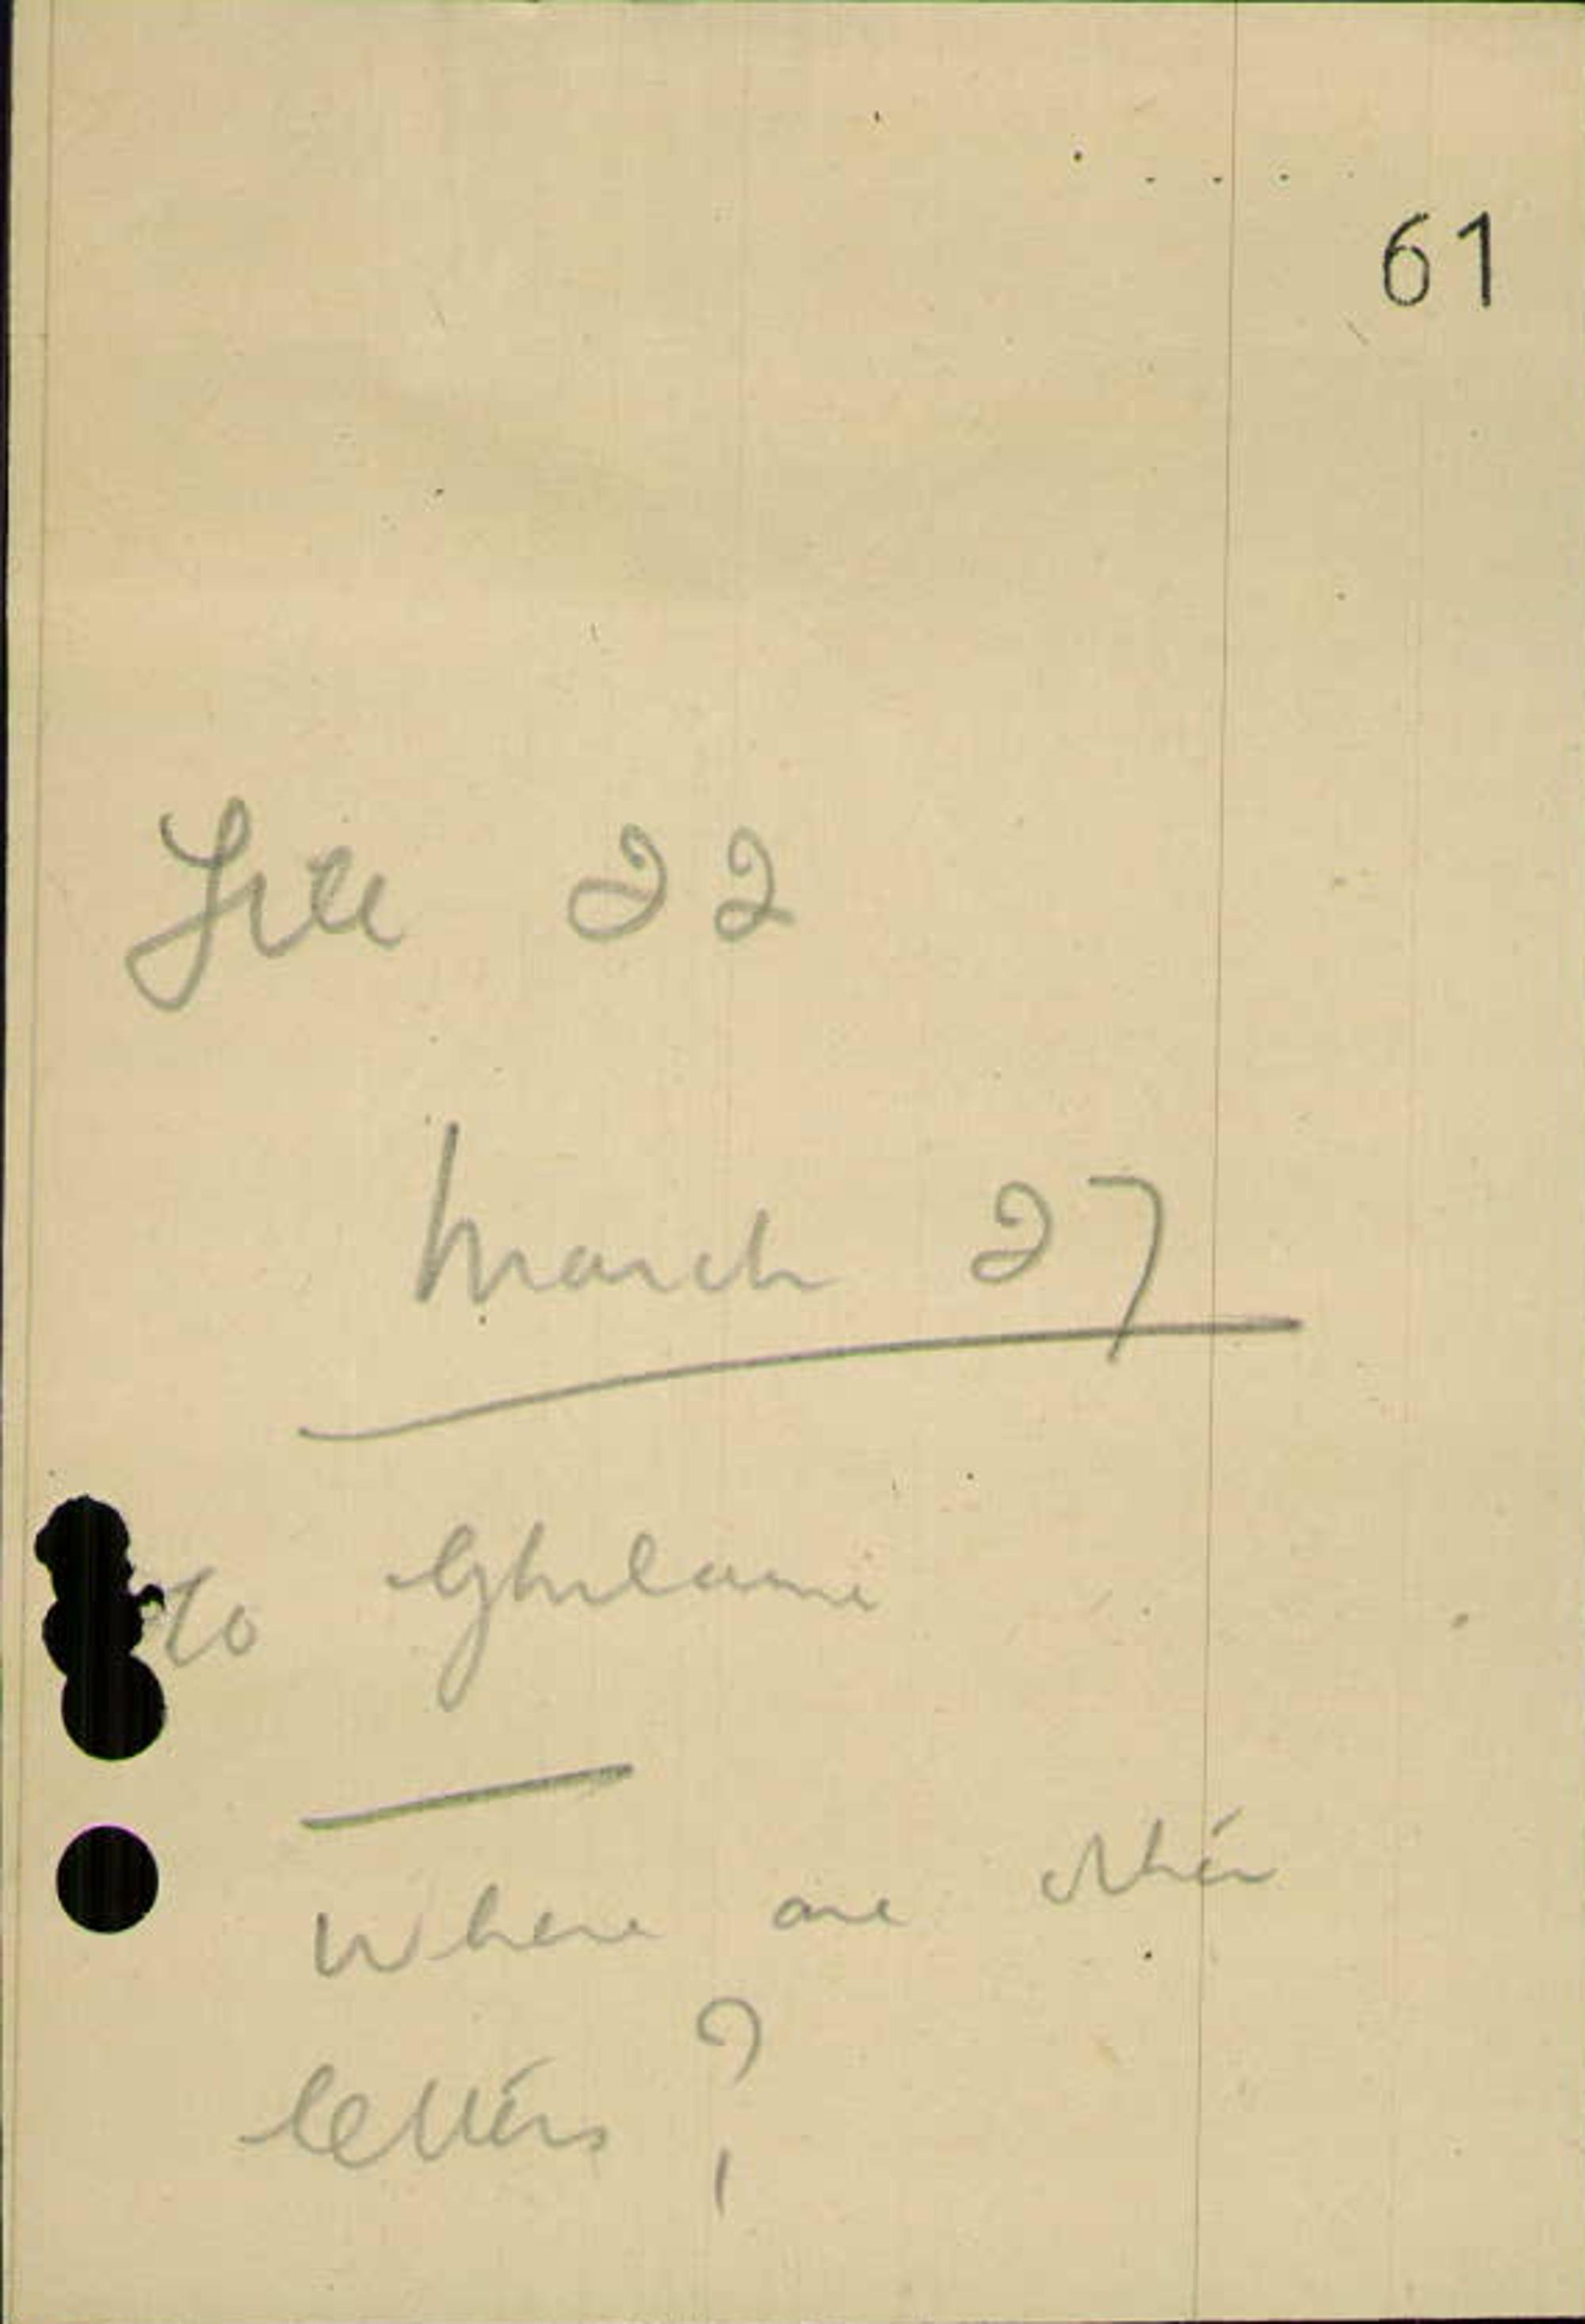 61
File 22
March 27
To Ghulami
Where are other
letters ?